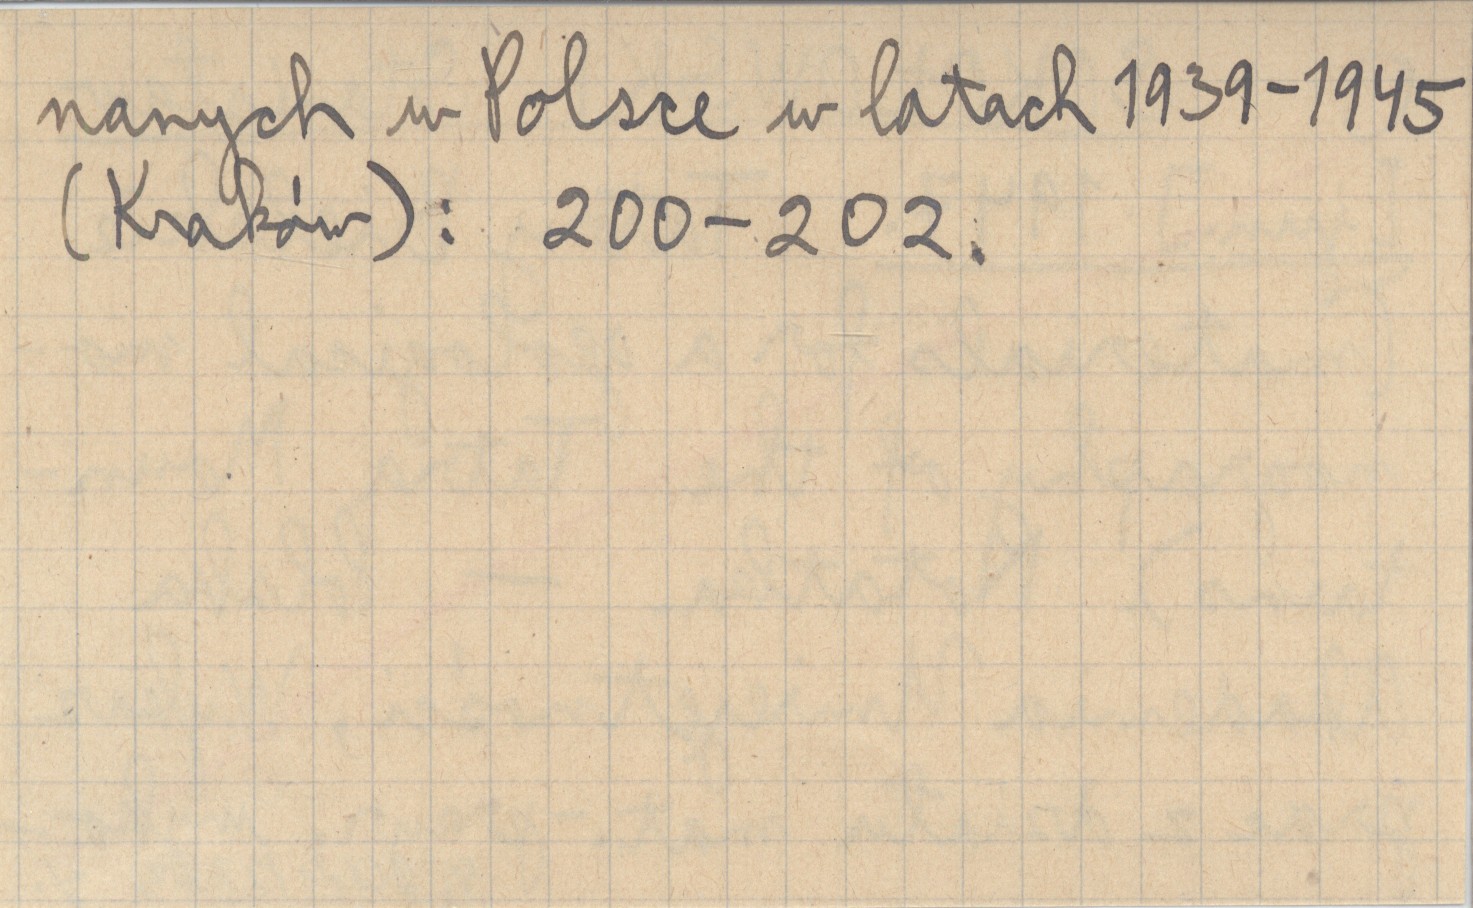 nanych w Polsce w latach 1939-1945
(Kraków): 200-202.